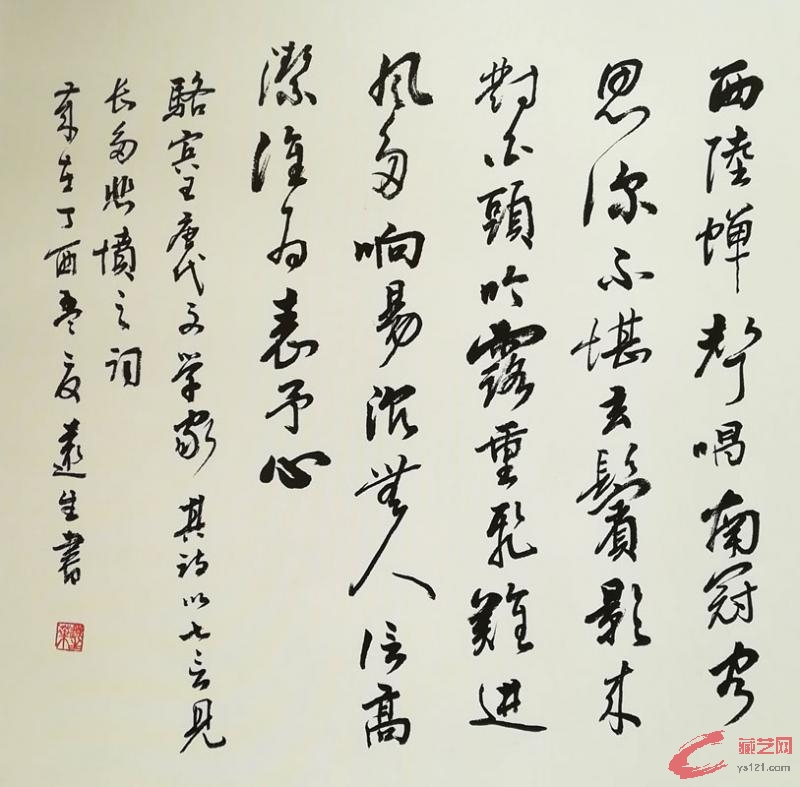 西陸蝉聲唱南冠客
思深不堪玄鬢影来
對白頭吟露重飛難進
風多响易沉無人信高
潔誰為表予心
駱賓王唐代文学家 其詩以七言見
长多悲憤之词
歲在丁酉 生書
藏艺网
ys121.com